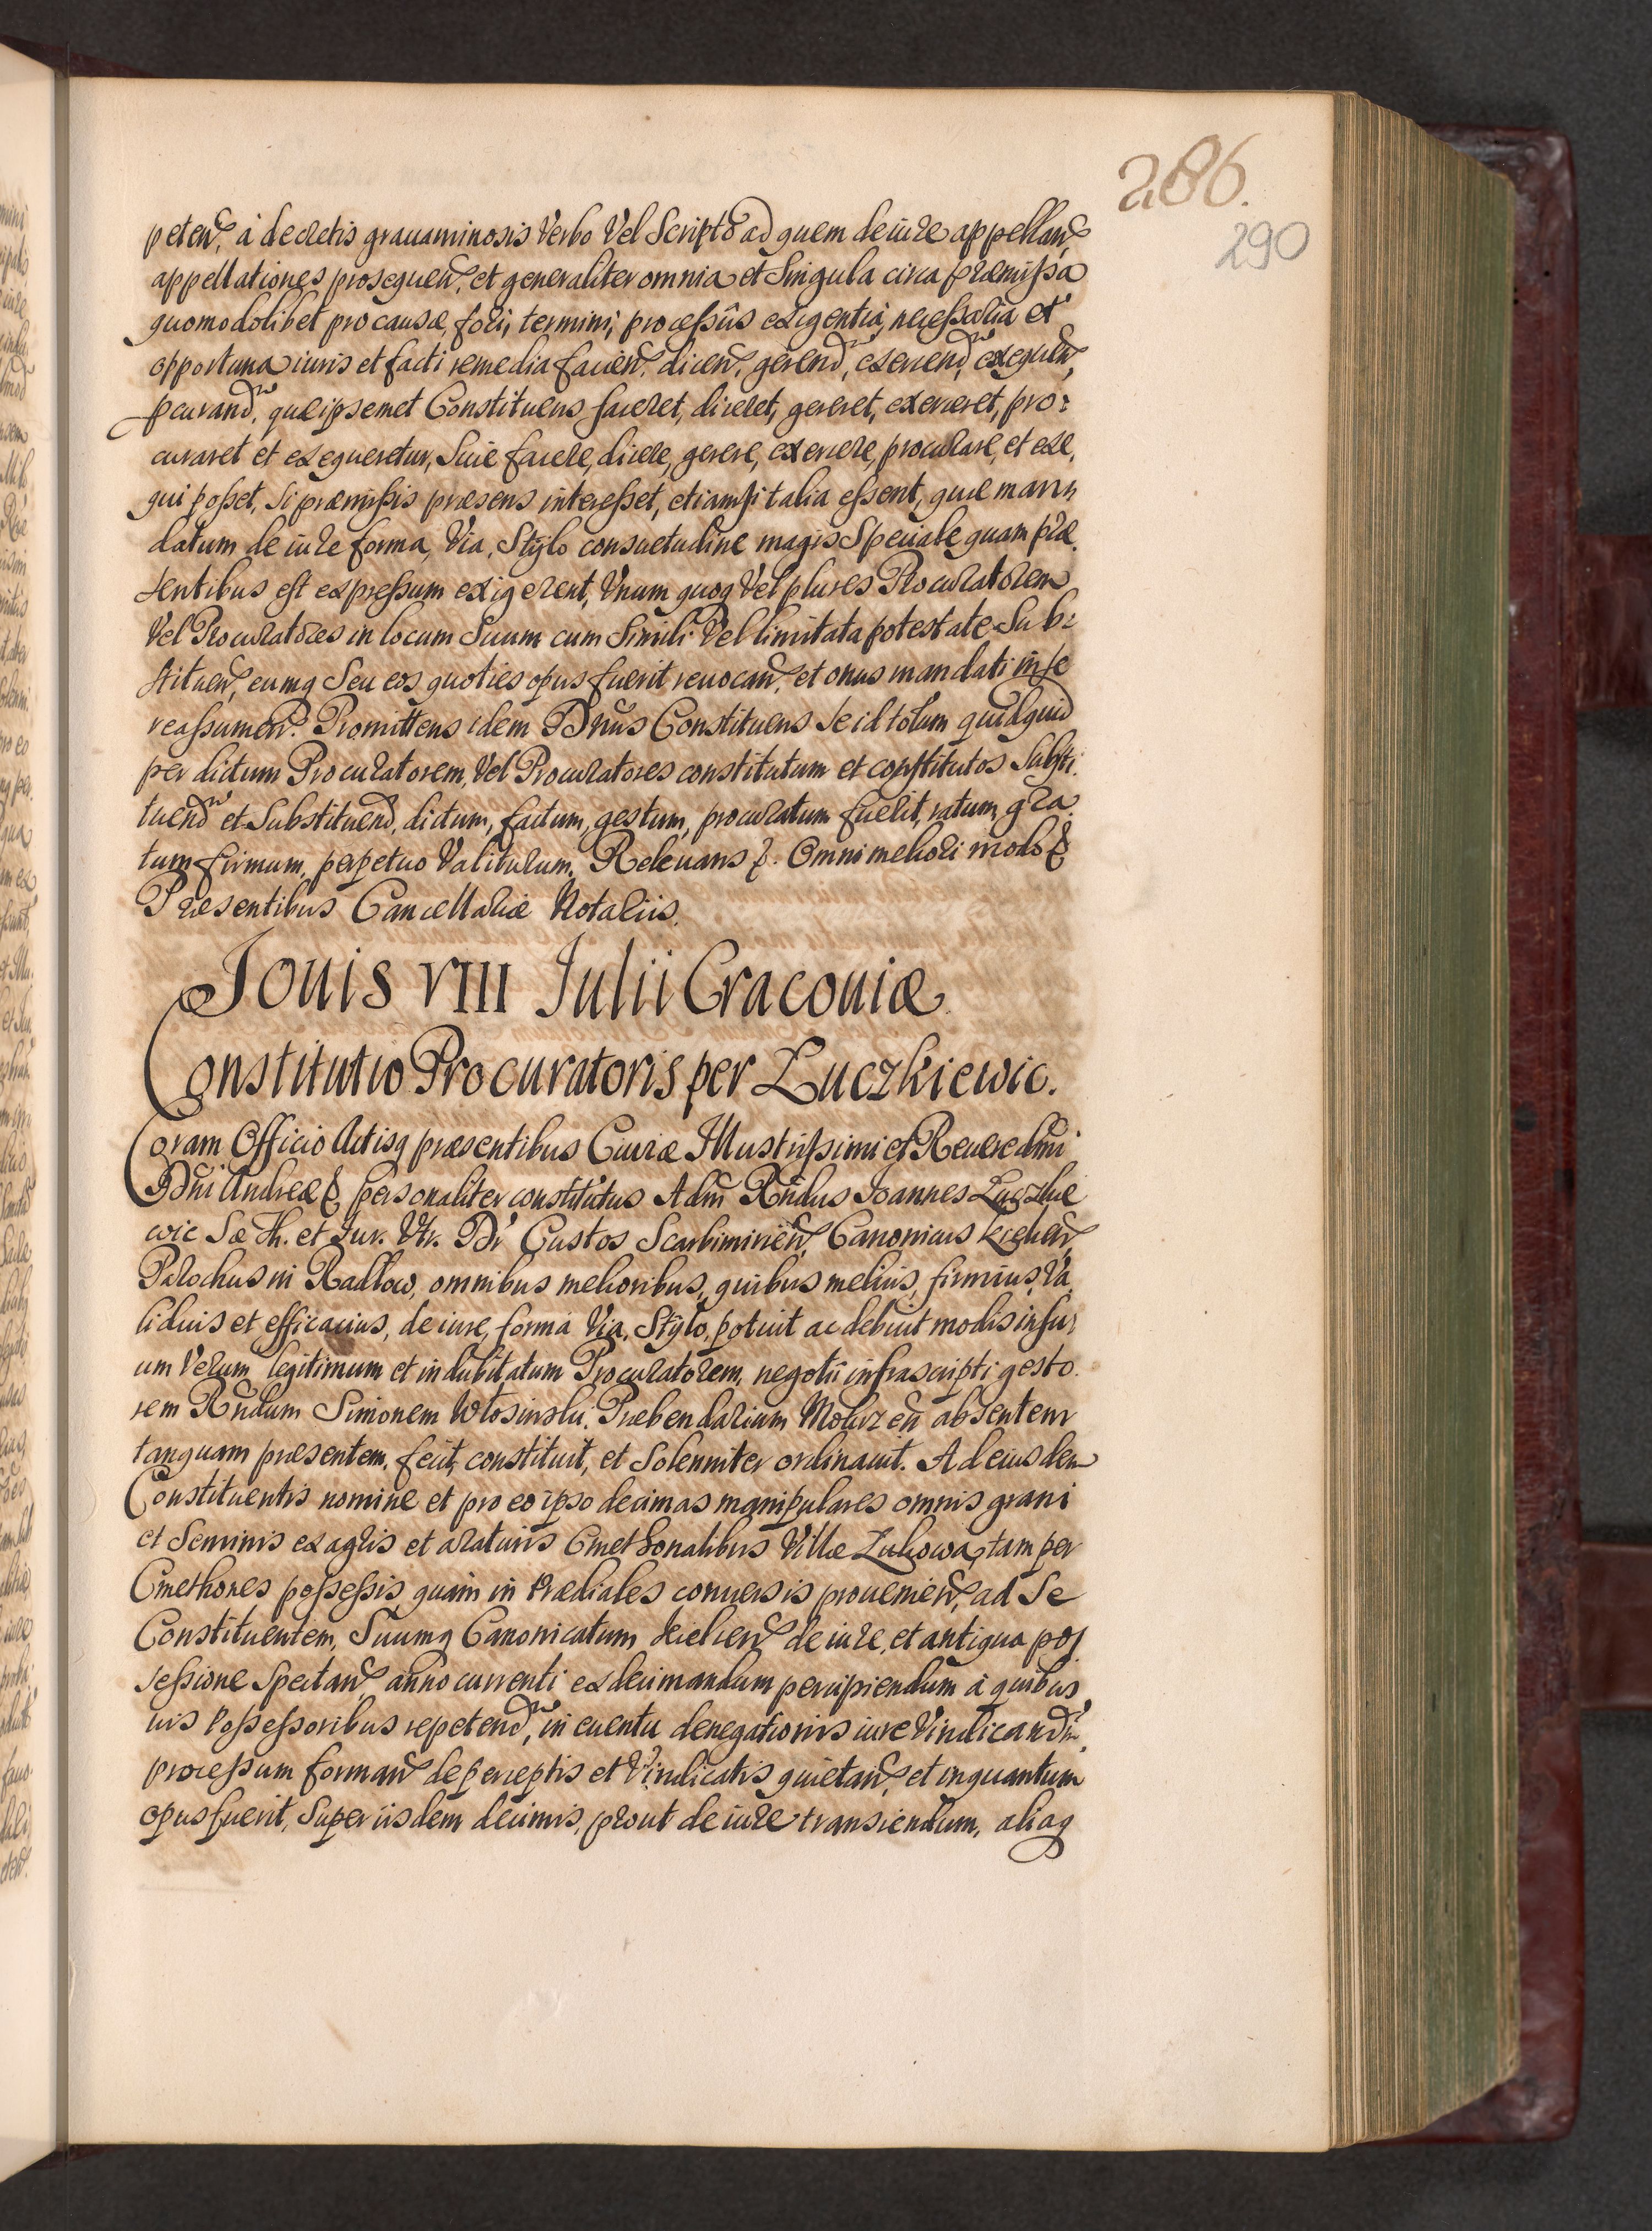 286.
290
peten, à decretis grauaminosis Verbo Vel Scripto ad quem de iure appellan,
appellationes prosequen, et generaliter omnia et Singula circa præmissa
quomodolibet pro causæ, fori, termini, processûs exigentiâ, necessaria et
opportuna iuris et facti remedia facien, dicen, gerend, exercend, exequen,
pcurand, quæ ipsemet Constituens faceret, diceret, gereret, exerceret, pro:
curaret et exequeretur, Siue facere, dicere, gerere, exercere, procurare, et exe,
qui posset, si præmissis præsens interesset, etiamsi talia essent, quæ mann
datum de iure forma, Via, Stÿlo consuetudine magis Speciale quam præ,
sentibus est expressum exigerent, Vnum quoq Vel plures Procuratorem
Vel Procuratores in locum Suum cum Simili Vel limitata potestate Sub:
stituen, eumq Seu eos quoties opus fuerit reuocan, et onus mandati in se
reassumen. Promittens idem Dnus Constituens se id totum quidquid
per dictum Procuratorem, Vel Procuratores constitutum et constitutos Substi,
tuend et Substituend, dictum, factum, gestum, procuratum fuerit, ratum, gra
tum firmum, perpetuo Valiturum. Releuans &. Omni meliori modo &
Præsentibus Cancellariæ Notariis.
Jouis VIII Julii Cracouiæ
Constitutio Procuratoris per Łuczkiewic.
Coram Officio Actisq præsentibus Curiæ Illustrissimi et Reueredmi
Dni Andreæ &, personaliter constitutus Adm Rndus Joannes Łuczkie
wic Sæ Th. et Jur. Vtr. Dr Custos Scarbimirien, Canonicus Kielcen,
Parochus in Radłow, omnibus melioribus, quibus melius, firmius, Va
lidius et efficacius, de iure, formâ Via, Stÿlo, potuit ac debuit modis in su,
um Verum legitimum et indubitatum Procuratorem, negotii infrascripti gesto.
rem Rndum Simonem Włosinski, Præbendarium Mokrzen absentem
tanquam præsentem, fecit, constituit, et Solenniter ordinauit. Ad eiusdem
Constituentis nomine et pro eo ipso decimas manipulares omnis grani
et Seminis ex agris et araturis Cmethonalibus Villæ Zukowa, tam per
Cmethones possessis quàm in Prædiales conuersis prouenien, ad Se
Constituentem, Suumq Canonicatum Kielcen de iure, et antiqua pos
sessione Spectan anno currenti exdecimandum percipiendum à quibus
uis Possessoribus repetend, in euentu denegationis iure Vindicand,
processum forman de perceptis et Vindicatis quietan, et inquantum
opus fuerit, Super iisdem decimis, prout de iure transiendum, aliaq